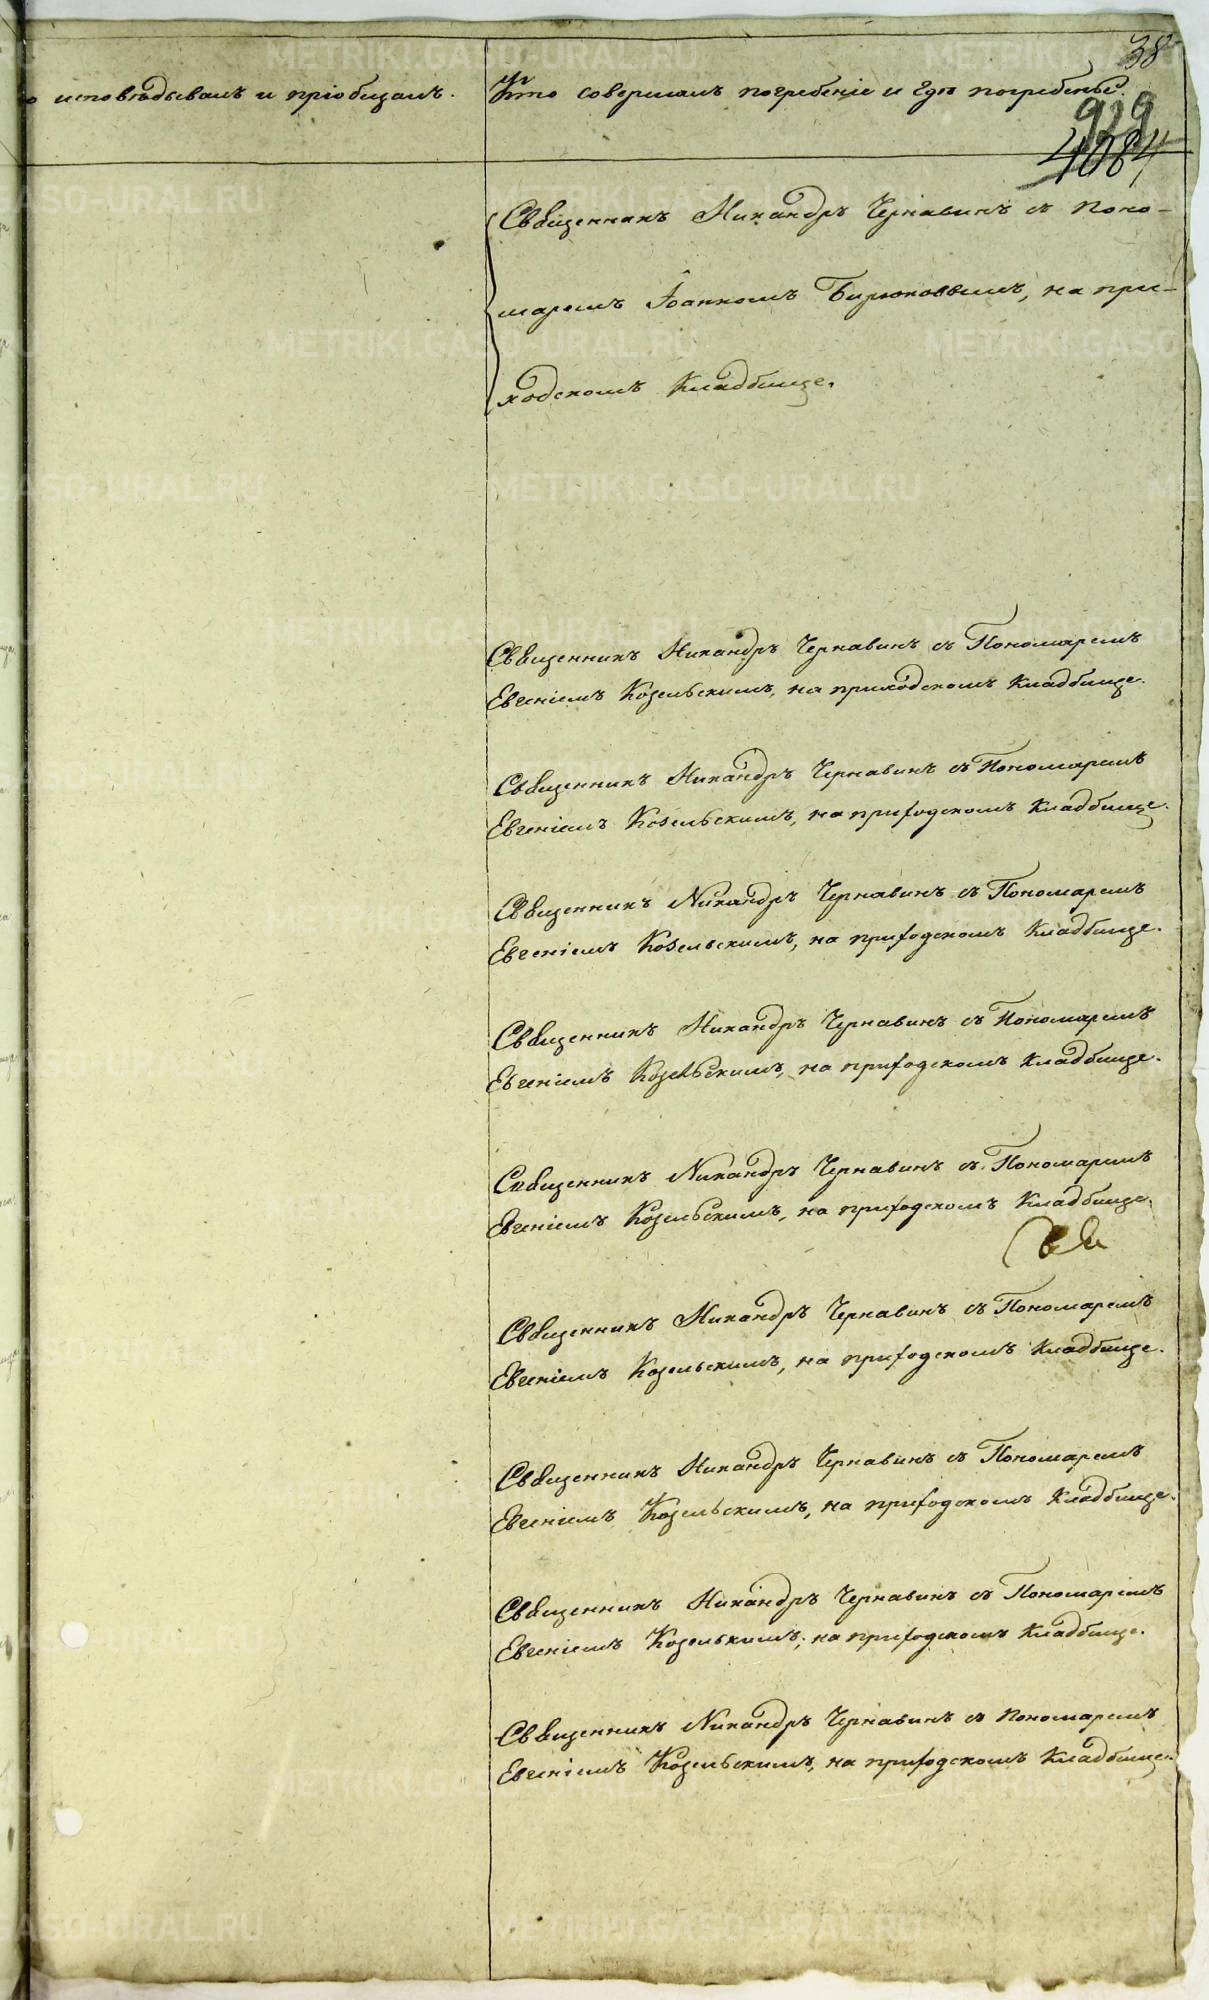 38
о исповѣдывалъ и пріобщалъ.
Кто совершалъ погребеніе и гдѣ погребены.
929
4084
Священникъ Никандръ Чернавинъ съ Поно-
маремъ Іоанномъ Бирюковымъ, на при-
ходскомъ Кладбище.
Священникъ Никандръ Чернавинъ съ Пономаремъ
Евгеніемъ Козельскимъ, на приходскомъ Кладбище.
Священникъ Никандръ Чернавинъ съ Пономаремъ
Евгеніемъ Козельскимъ, на приходскомъ Кладбище.
Священникъ Никандръ Чернавинъ съ Пономаремъ
Евгеніемъ Козельскимъ, на приходскомъ Кладбище.
Священникъ Никандръ Чернавинъ съ Пономаремъ
Евгеніемъ Козельскимъ, на приходскомъ Кладбище.
Священникъ Никандръ Чернавинъ съ Пономаремъ
Евгеніемъ Козельскимъ, на приходскомъ Кладбище.
Священникъ Никандръ Чернавинъ съ Пономаремъ
Евгеніемъ Козельскимъ, на приходскомъ Кладбище.
Священникъ Никандръ Чернавинъ съ Пономаремъ
Евгеніемъ Козельскимъ, на приходскомъ Кладбище.
Священникъ Никандръ Чернавинъ съ Пономаремъ
Евгеніемъ Козелькимъ, на приходскомъ Кладбище.
Священникъ Никандръ Чернавинъ съ Пономаремъ
Евгеніемъ Козельскимъ, на приходскомъ Кладбище.